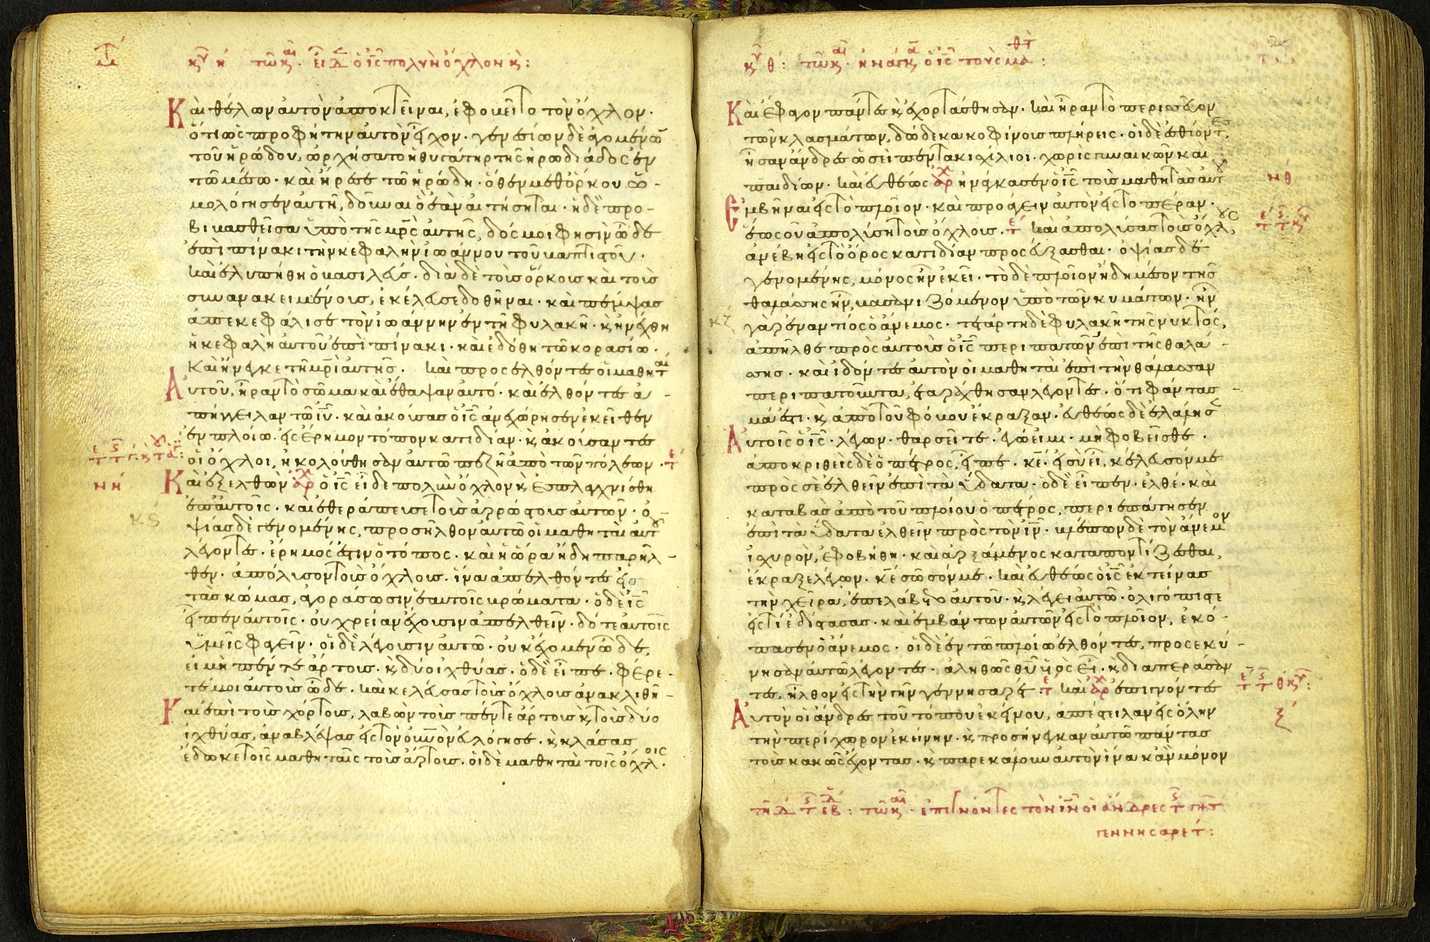 Καὶ θέλων αὐτὸν ἀποκτεῖναι, ἐφοβεῖτο τὸν ὄχλον·
ὅτι ὡς προφήτην αὐτὸν εἶχον· γενεσίων δὲ ἀγομένων
τοῦ ἡρώδου, ὠρχήσατο ἡ θυγάτηρ τῆς ἡρωδιάδος ἐν
τῶ μέσω· καὶ ἤρεσε τῶ ἡρώδη· ὅθεν μεθ ὅρκου ὡ-
μολόγησεν αὐτῆ, δοῦναι ὃ ἐὰν αἰτήσηται· ἡ δὲ προ-
βιβασθεῖσα ὑπὸ τῆς μρς αὐτῆς, δός μοι φησὶν ὧδε
ἐπὶ πίνακι τὴν κεφαλὴν ἰωάννου τοῦ βαπτιστοῦ·
καὶ ἐλυπήθη ὁ βασιλεύς· διὰ δὲ τοὺς ὅρκους καὶ τοὺς
συνανακειμένους, ἐκέλευσε δοθῆναι· καὶ πέμψας
ἀπεκεφάλισε τὸν ἰωάννην ἐν τῆ φυλακῆ· κ ἠνέχθη
ἡ κεφαλὴ αὐτοῦ ἐπὶ πίνακι· καὶ ἐδόθη τῶ κορασίω·
Καὶ ἤνεγκε τῆ μρι αὐτῆς· καὶ προσελθόντες οἱ μαθηταὶ
Αὐτοῦ, ἦραν τὸ σῶμα καὶ ἔθαψαν αὐτό· καὶ ἐλθόντες ἀ-
πήγγειλαν τῶ ιυ· καὶ ἀκούσας ὁ ις ἀνεχώρησεν ἐκεῖθεν
ἐν πλοίω· εἰς ἔρημον τόπον κατιδίαν· κ ἀκούσαντες
οἱ ὄχλοι, ἠκολούθησαν αὐτῶ πεζῆ ἀπὸ τῶν πόλεων·
Καὶ ἐξελθὼν ὁ ις εἶδε πολὺν ὄχλον κ ἐσπλαγχνίσθη
ἐπ αὐτοῖς· καὶ ἐθεράπευσε τοὺς ἀρρώστους αὐτῶν· ὀ-
ψίας δὲ γενομένης, προσῆλθον αὐτῶ οἱ μαθηταὶ αὐτοῦ
λέγοντες· ἔρημός ἐστιν ὁ τόπος· καὶ ἡ ὥρα ἤδη παρῆλ-
θεν· ἀπόλυσον τοὺς ὄχλους· ἵνα ἀπελθόντες εἰς
τὰς κώμας, ἀγοράσωσιν ἑαυτοῖς βρώματα· ὁ δὲ ις
εἶπεν αὐτοῖς· οὐ χρείαν ἔχουσιν ἀπελθεῖν· δότε αὐτοῖς
ὑμεῖς φαγεῖν· οἱ δὲ λέγουσιν αὐτῶ· οὐκ ἔχομεν ὧδε,
εἰ μὴ πέντε ἄρτους· κ δύο ἰχθύας· ὁ δὲ εἶπε· φέρε-
τέ μοι αὐτοὺς ὧδε· καὶ κελεύσας τοὺς ὄχλους ἀνακλιθῆν-
Καὶ ἐπὶ τοὺς χόρτους, λαβὼν τοὺς πέντε ἄρτους κ τοὺς δύο
ἰχθύας, ἀναβλέψας εἰς τὸν οὐνὸν εὐλόγησε· κ κλάσας
ἔδωκε τοῖς μαθηταῖς τοὺς ἄρτους· οἱ δὲ μαθηταὶ τοῖς ὄχλοις·
Καὶ ἔφαγον πάντες κ ἐχορτάσθησαν· καὶ ἦραν τὸ περισσεῦον
τῶν κλασμάτων, δώδεκα κοφίνους πλήρεις· οἱ δὲ ἐσθίοντες
ἦσαν ἄνδρες ὡσεὶ πεντακισχίλιοι· χωρὶς γυναικῶν καὶ
παιδίων· καὶ εὐθέως ἠνάγκασεν ὁ ις τοὺς μαθητὰς αὐτοῦ
Ἐμβῆναι εἰς τὸ πλοῖον· καὶ προάγειν αὐτὸν εἰς τὸ πέραν·
ἕως οὗ ἀπολύση τοὺς ὄχλους· καὶ ἀπολύσας τοὺς ὄχλους
ἀνέβη εἰς τὸ ὄρος κατιδίαν προσεύξασθαι· ὀψίας δὲ
γενομένης, μόνος ἦν ἐκεῖ· τὸ δὲ πλοῖον ἤδη μέσον τῆς
θαλάσσης ἦν, βασανιζόμενον ὑπὸ τῶν κυμάτων· ἦν
γὰρ ἐναντίος ὁ ἄνεμος· τετάρτη δὲ φυλακῆ τῆς νυκτός,
ἀπῆλθε πρὸς αὐτοὺς ὁ ις περιπατῶν ἐπὶ τῆς θαλά-
σσης· καὶ ἰδόντες αὐτὸν οἱ μαθηταὶ ἐπὶ τὴν θάλασσαν
περιπατοῦντα, ἐταράχθησαν λέγοντες· ὅτι φάντασ-
μά ἐστι· κ ἀπὸ τοῦ φόβου ἔκραξαν· εὐθέως δὲ ἐλάλησεν
Αὐτοῖς ὁ ις λέγων· θαρσεῖτε· ἐγώ εἰμι· μὴ φοβεῖσθε·
ἀποκριθεὶς δὲ ὁ πέτρος, εἶπε· κε· εἰ σὺ εἶ, κέλευσόν με
πρὸς σὲ ἐλθεῖν ἐπὶ τὰ ὕδατα· ὁ δὲ εἶπεν· ἐλθέ· καὶ
καταβὰς ἀπὸ τοῦ πλοίου ὁ πέτρος, περιεπάτησεν
ἐπὶ τὰ ὕδατα ἐλθεῖν πρὸς τὸν ιν· βλέπων δὲ τὸν ἄνεμον
ἰσχυρὸν, ἐφοβήθη· καὶ ἀρξάμενος καταποντίζεσθαι,
ἔκραξε λέγων· κε σῶσόν με· καὶ εὐθέως ὁ ις ἐκτείνας
τὴν χεῖρα, ἐπελάβετο αὐτοῦ· κ λέγει αὐτῶ· ὀλιγόπιστε
εἰς τί ἐδίστασας· καὶ ἐμβάντων αὐτῶν εἰς τὸ πλοῖον, ἐκό-
πασεν ὁ ἄνεμος· οἱ δὲ ἐν τῶ πλοίω ἐλθόντες, προσεκύ-
νησαν αὐτῶ λέγοντες· ἀληθῶς θυ υς εἶ· κ διαπεράσαν-
τες, ἦλθον εἰς τὴν γῆν γεννησαρέτ· καὶ ἐπιγνόντες
Αὐτὸν οἱ ἄνδρες τοῦ τόπου ἐκείνου, ἀπέστειλαν εἰς ὅλην
τὴν περίχωρον ἐκείνην· κ προσήνεγκαν αὐτῶ πάντας
τοὺς κακῶς ἔχοντας· κ παρεκάλουν αὐτὸν ἵνα κἂν μόνον